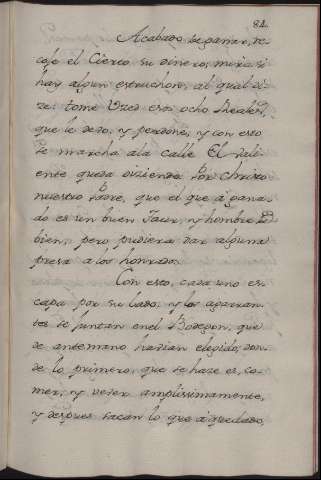 82.
Acabado de ganar, re-
coje el Cierto su dinero, mira si
hay algun estruchon, al qual di-
ze: tome Vmd esos ocho Reales,
que le dedo, y perdone, y con esto
se marcha ala calle El vali-
ente queda diziendo: Por Christo
nuestro Padre, que el que à gana-
do es un buen Taur, y hombre de
bien, pero pudiera dar alguna
presa a los honrados.
Con esto, cada uno es-
capa por su lado, y los agarran-
tes se juntan enel Bodegon, que
de antemano havian elegido, don-
de lo primero, que se haze es, co-
mer, y vever amplisimamente,
y despues sacan lo que à quedado,